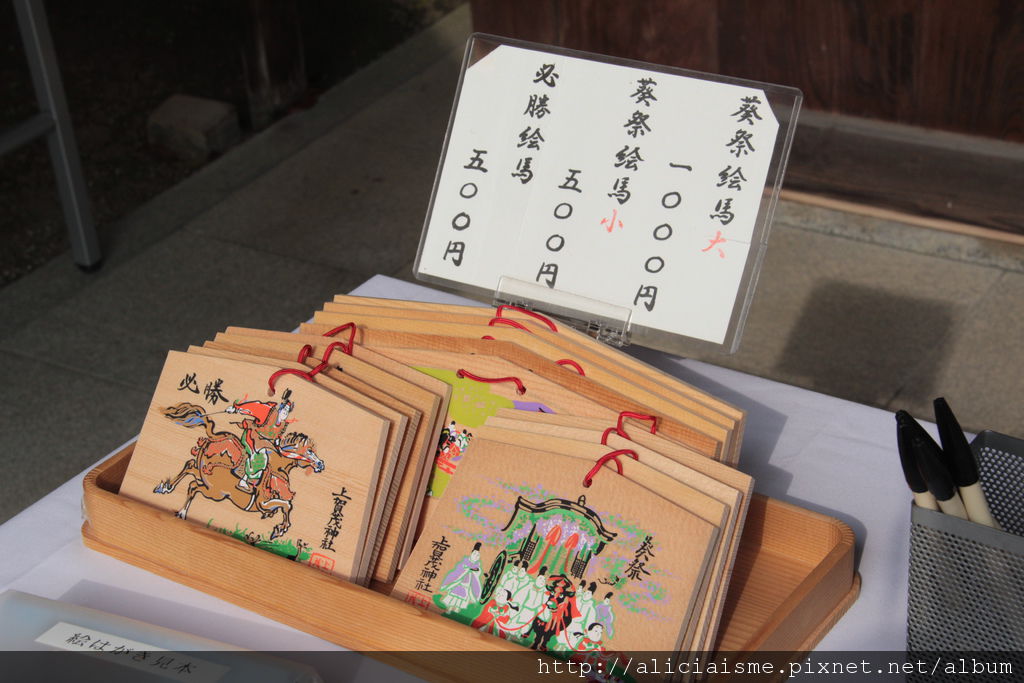 葵祭絵馬大
一〇〇〇円
葵祭絵馬小
五〇〇円
必勝絵馬
五〇〇円
必勝
上賀茂神社
葵祭
上賀茂神社
絵はがき見本
http://aliciaisme.pixnet.net/album